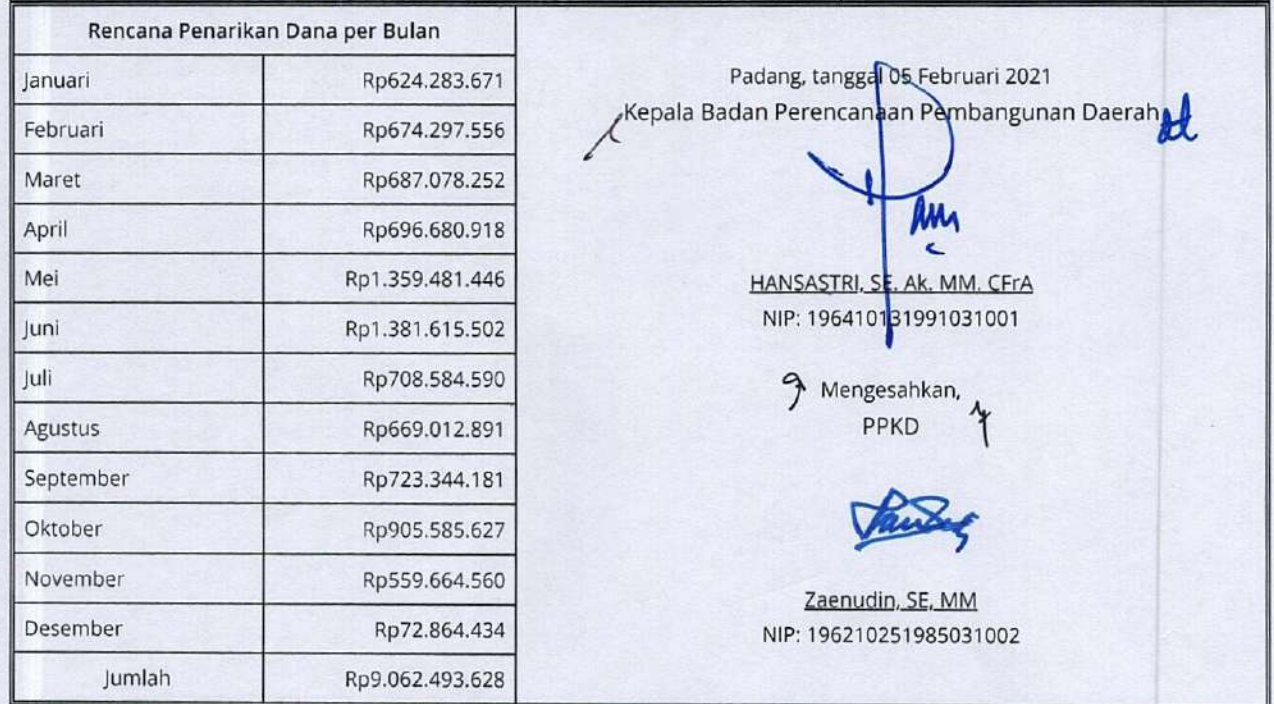 Rencana Penarikan Dana per Bulan
Januari Rp624.283.671
Februari Rp674.297.556
Maret Rp687.078.252
April Rp696.680.918
Mei Rp1.359.481.446
Juni Rp1.381.615.502
Juli Rp708.584.590
Agustus Rp669.012.891
September Rp723.344.181
Oktober Rp905.585.627
November Rp559.664.560
Desember Rp72.864.434
Jumlah Rp9.062.493.628
Padang, tanggal 05 Februari 2021
Kepala Badan Perencanaan Pembangunan Daerah
HANSASTRI, SE. Ak. MM. CFrA
NIP: 196410131991031001
Mengesahkan,
PPKD
Zaenudin, SE, MM
NIP: 196210251985031002